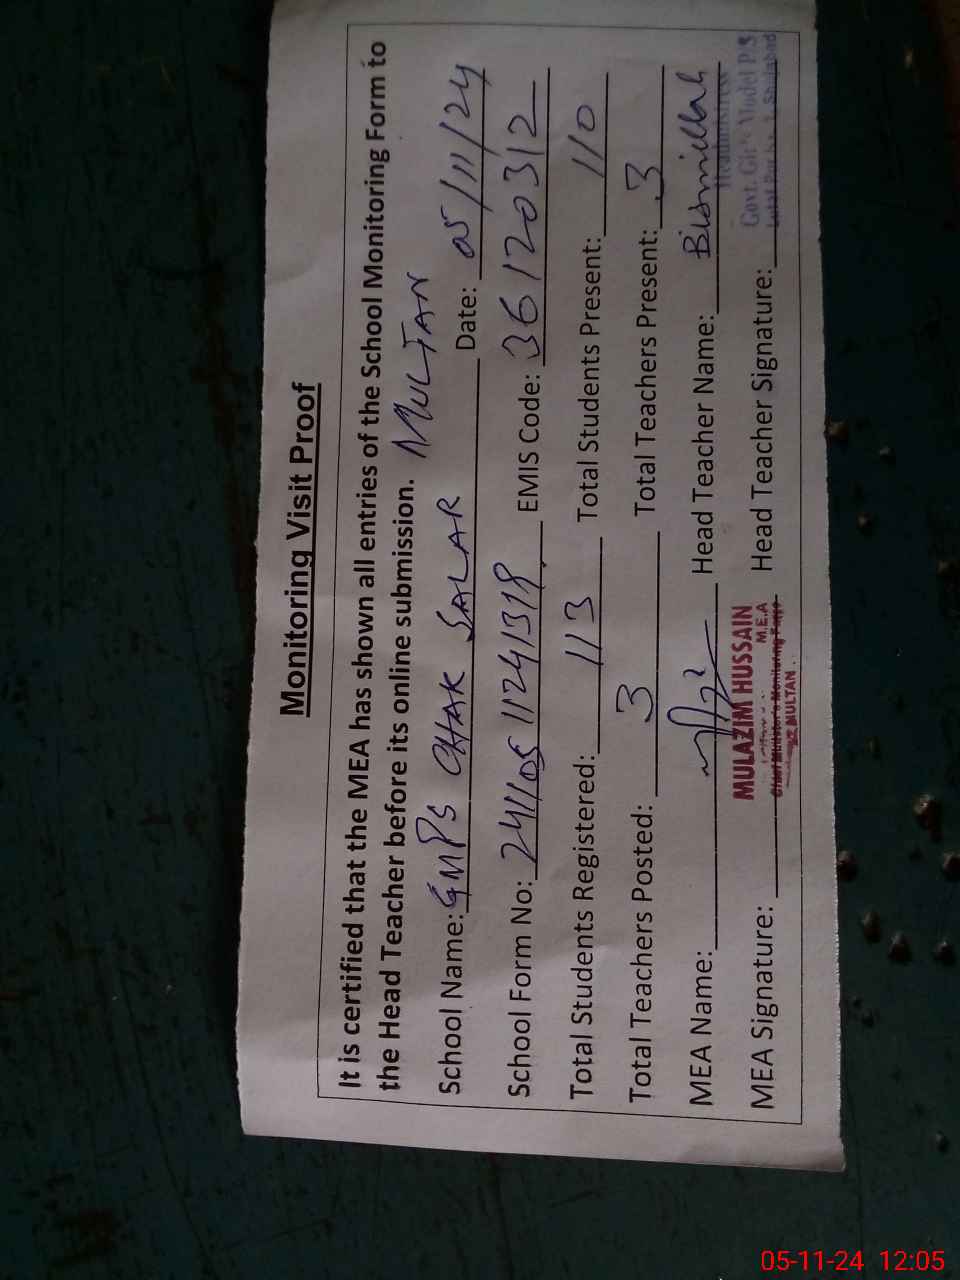 Monitoring Visit Proof
It is certified that the MEA has shown all entries of the School Monitoring Form to
the Head Teacher before its online submission. MULTAN
School Name: GMPS CHAK SALAR Date: 05/11/24
School Form No: 241105 11241319 EMIS Code: 36120312
Total Students Registered: 113 Total Students Present: 110
Total Teachers Posted: 3 Total Teachers Present: 3
MEA Name: Head Teacher Name: Bismillah
MULAZIM HUSSAIN
M.E.A
Chief Minister's Monitoring Force
MULTAN
Headmistress
Govt. Girls Model P/S
MEA Signature: Head Teacher Signature:
05-11-24 12:05